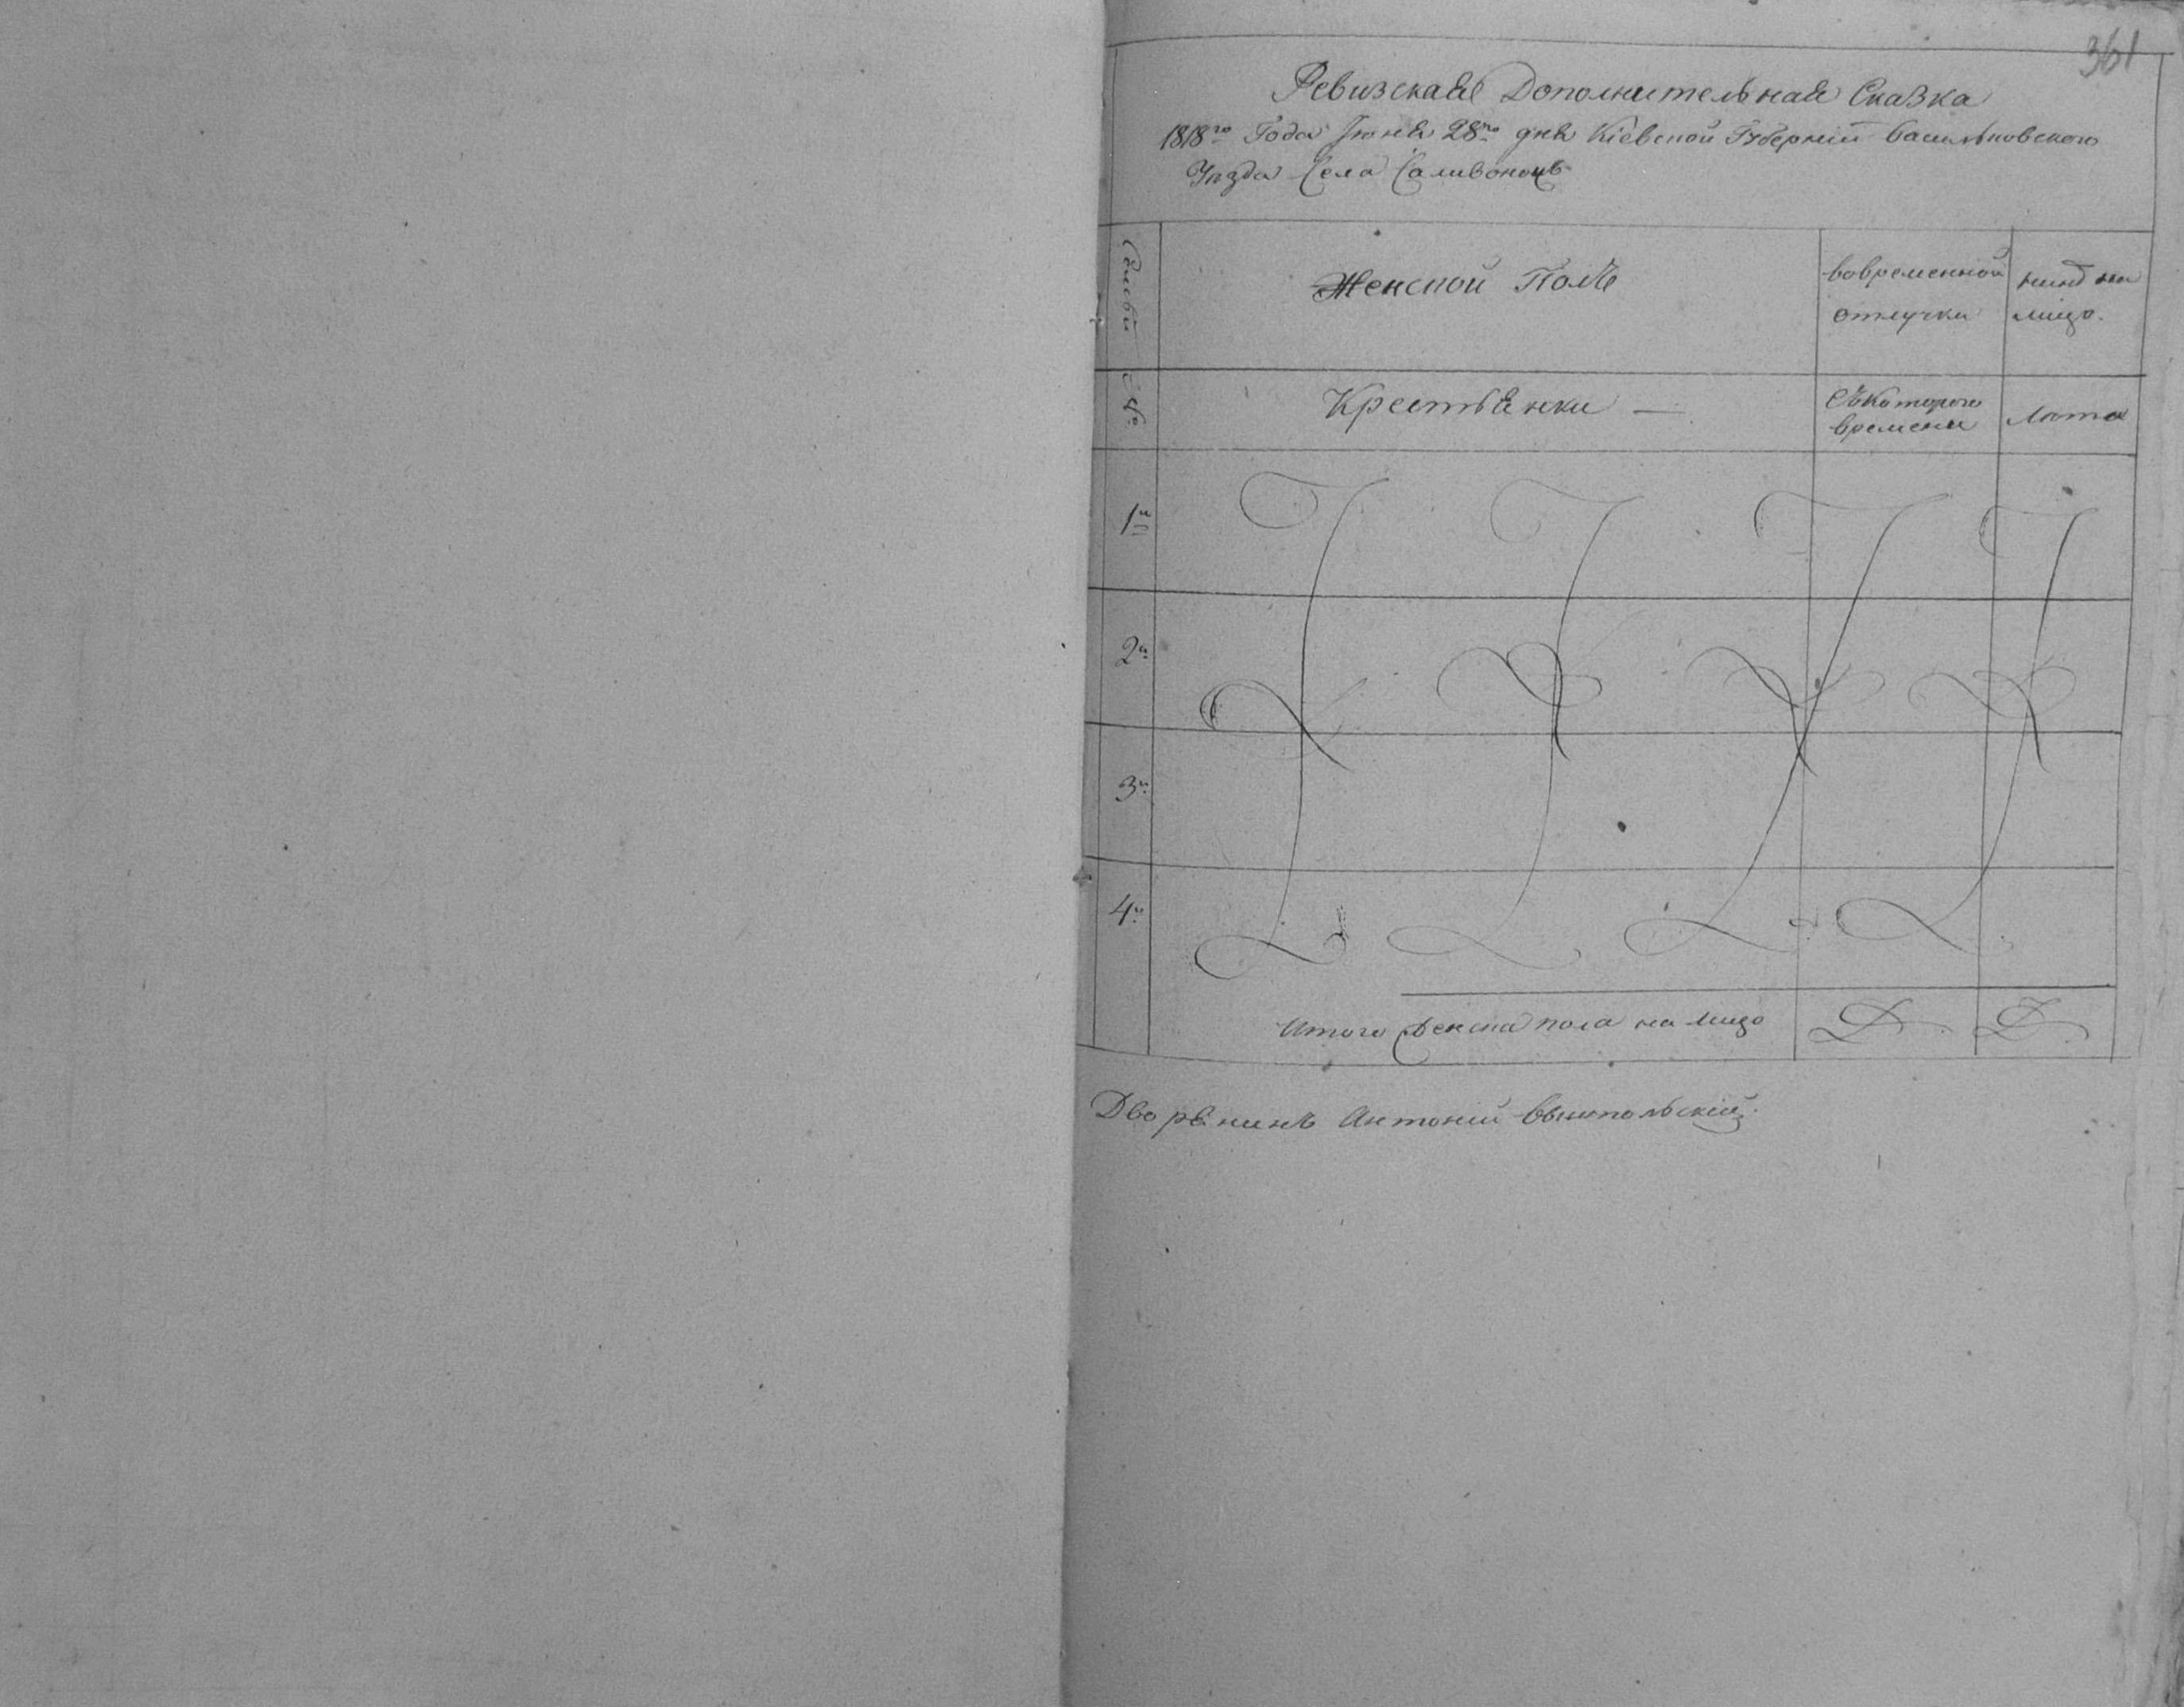 361
Ревизская Дополнительная Сказка
1818го Года Июня 28го дня Кіевской Губерніи Васильковского
Уѣзда Села Саливонокъ
Семьи
№
Женской Полъ
Вовременной
отлучки
нинѣ на
лицо.
Крестьянки —
Съкоторого
времени
Лѣта
1я
2я
3я
4я
Итого женска пола на лицо
Дворянинъ Антоній